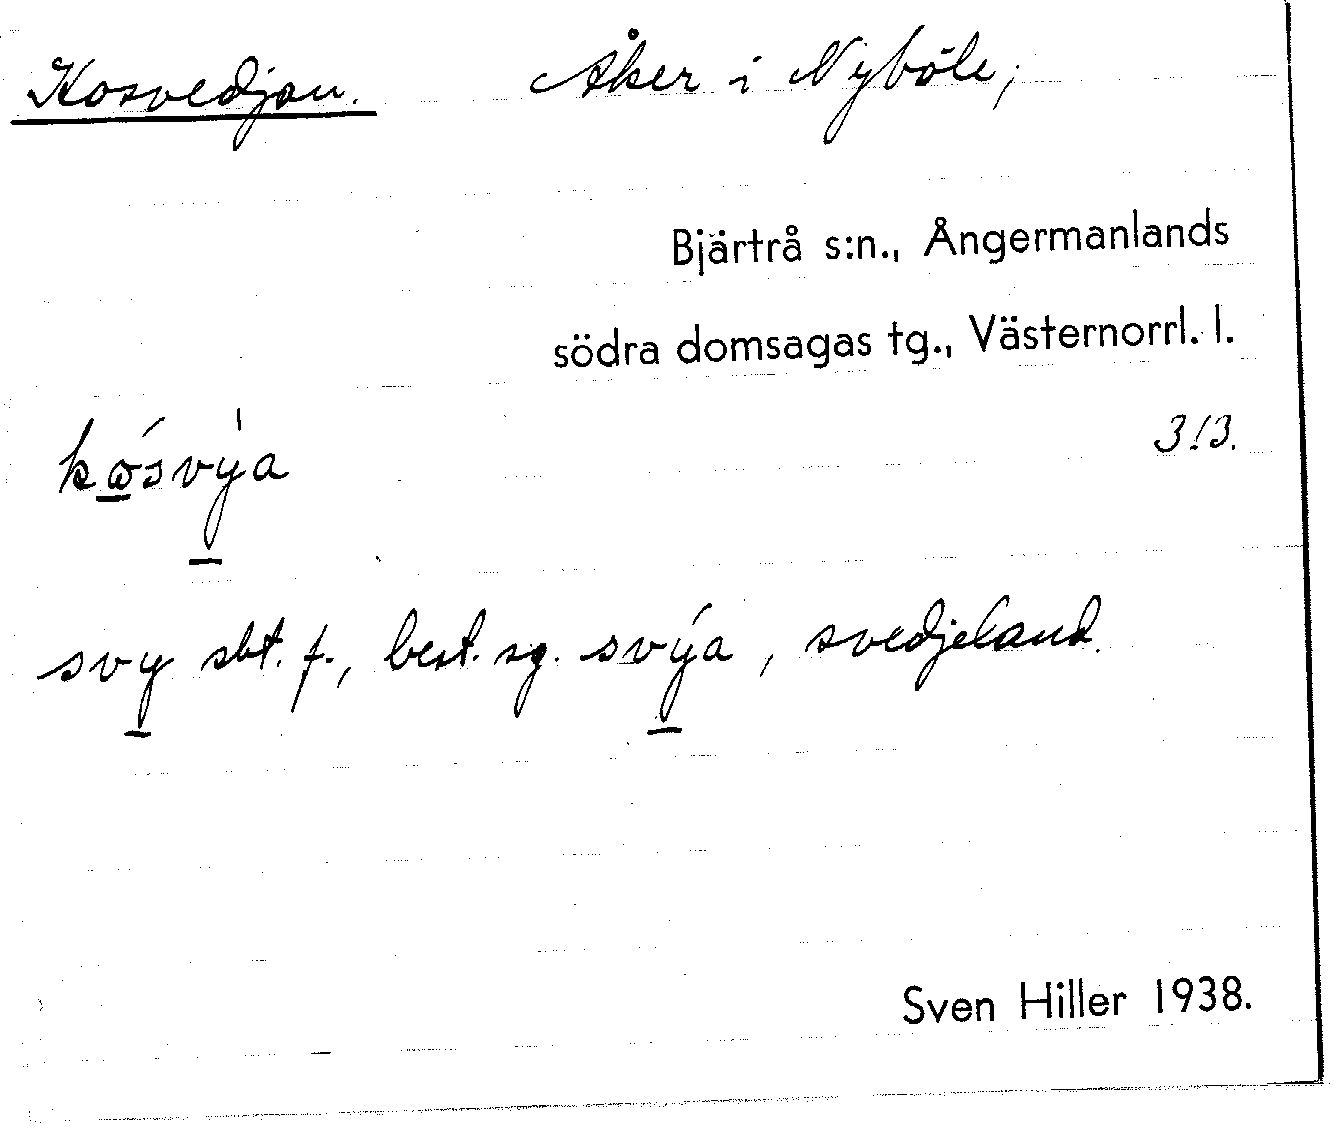 Kosvedjan. Åker i Nyböle,
Bjärtrå s:n., Ångermanlands
södra domsagas tg., Västernorrl. l.
3/3.
kώ̲svỳ̲a
svy̲ sbt. f., best. sg. svý̲a, svedjeland.
Sven Hiller 1938.